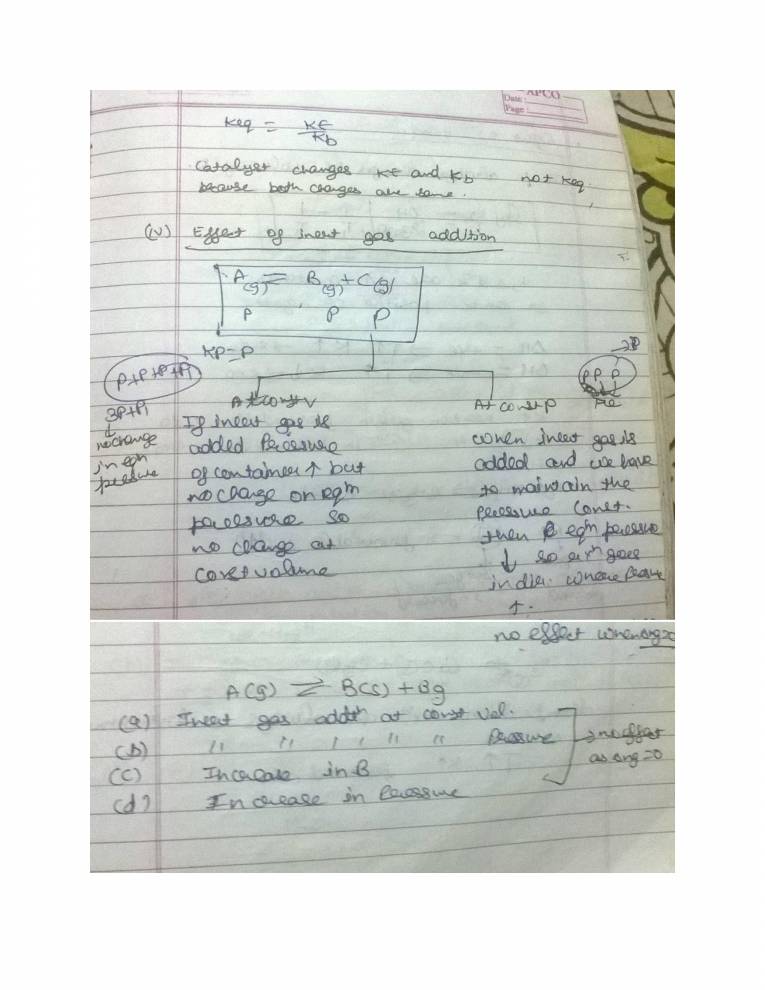 APCO
Date :
Page :
Keq = Kf
Kb
Catalyst changes Kf and Kb not Keq.
because both changes are same.
(iv) Effect of inert gas addition
A(g) ⇌ B(g) + C(g)
P P P
KP = P
P+P+P+P1
3P+P1
↓
no change
in eqm
pressure
P P P
He
At const V
If inert gas is
added Pressure
of container ↑ but
no change on eqm
pressure so
no change at
const volume
At const P
when inert gas is
added and we have
to maintain the
pressure const.
then eqm pressure
↓ so eqm goes
in dir. where Pressure
↑.
no effect when Δng=0
A(g) ⇌ B(s) + Bg
(a) Inert gas addtn at const vol.
(b) " " " " " " Pressure
(c) Increase in B
(d) Increase in Pressure
no effect
as Δng=0